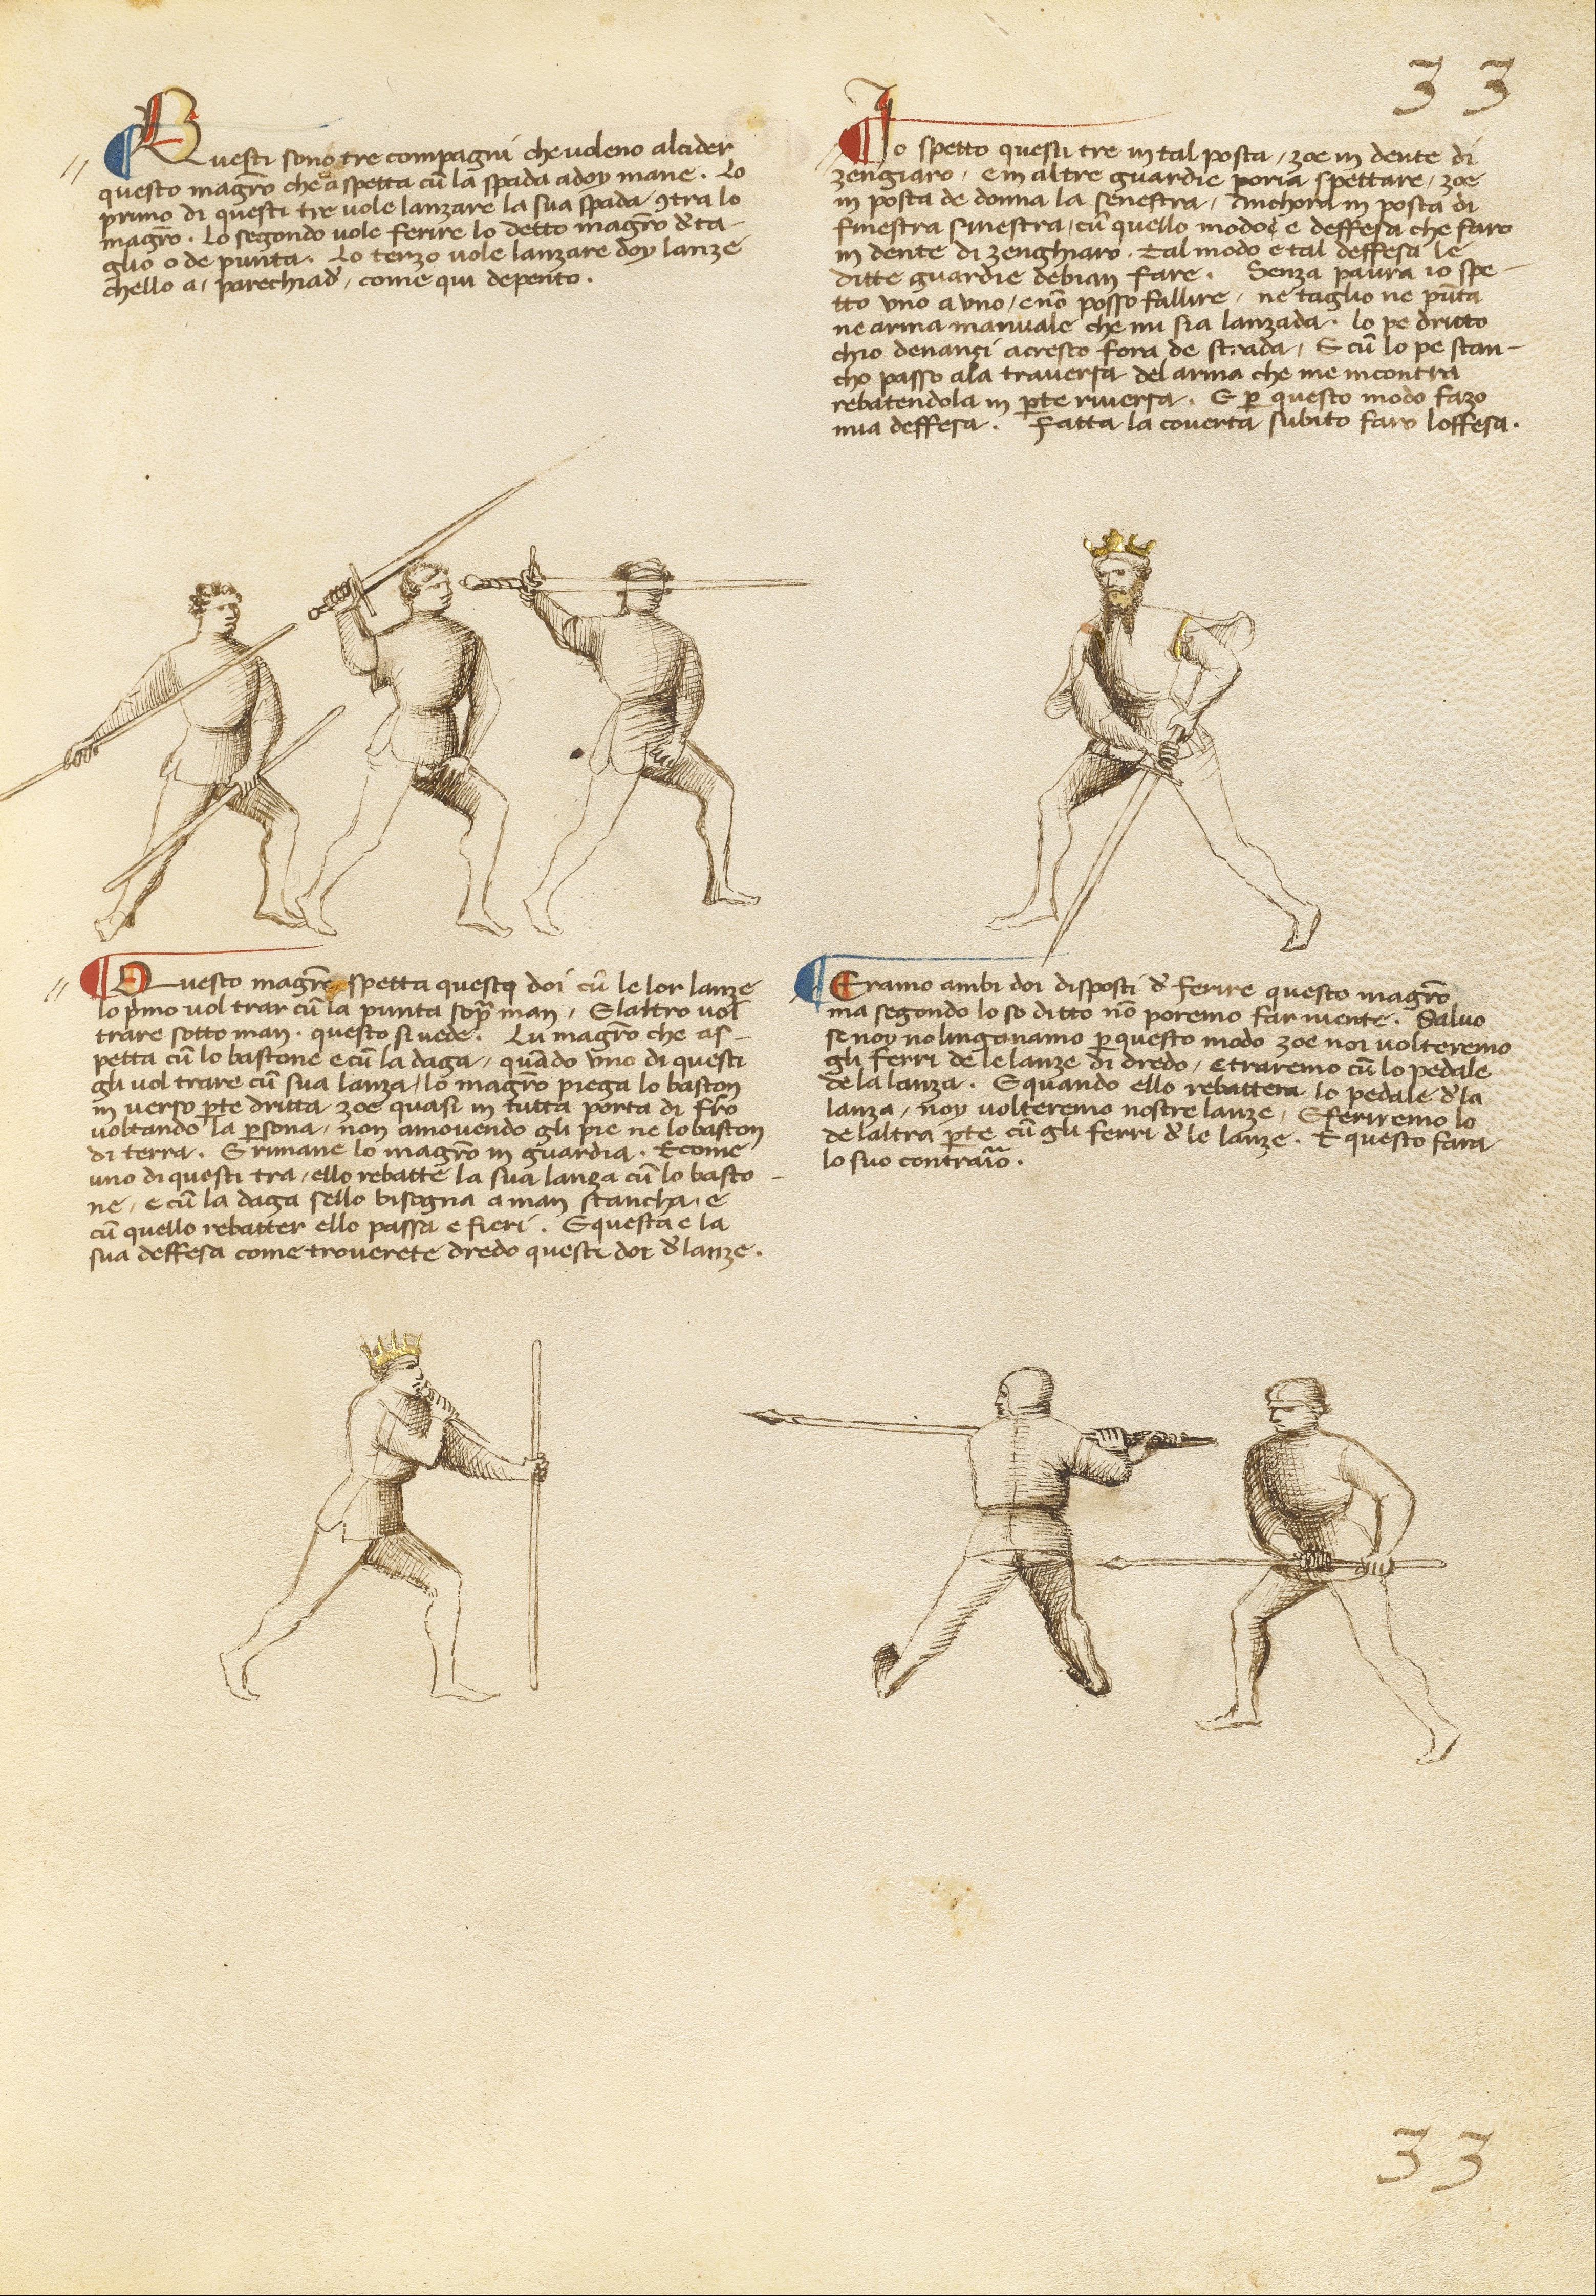 33
Questi sono tre compagni che voleno alcider
questo magrõ che aspetta cũ la spada adoy mane. Lo
primo di questi tre vole lanzare la sua spada ꝯtra lo
magrõ. Lo segondo vole ferire lo detto magrõ d'ta-
glio o de punta. Lo terzo vole lanzare doy lanze
chello a, parechiad', come qui depento.
Io spetto questi tre in tal posta, zoe in dente di
zengiaro, e in altre guardie poria spettare, zoe
in posta de donna la senestra, Anchora in posta di
finestra sinestra, cũ quello modo e deffesa che faro
in dente di zenghiaro. Tal modo e tal deffesa le
ditte guardie debian fare. Senza paura io spe-
tto uno a uno, e nõ posso fallire, ne taglio ne pũta
ne arma manuale che mi sia lanzada. lo pe dritto
chio denanzi acresco fora de strada, E cũ lo pe stan-
cho passo ala traversa del arma che me incontra
rebatendola in pte riversa. E p questo modo fazo
mia deffesa. Fatta la coverta subito faro loffesa.
Questo magrõ spetta questi doi cũ le lor lanze
lo pmo vol trar cũ la punta sopra man, E laltro vol
trare sotto man. questo si vede. Lu magrõ che as-
petta cũ lo bastone e cũ la daga, quãdo uno di questi
gli vol trare cũ sua lanza, lo magrõ piega lo baston
in verso pte dritta zoe quasi in tutta porta di fr̃o
voltando la psona, non amovendo gli pie ne lo baston
di terra. E rimane lo magrõ in guardia. E come
uno di questi tra, ello rebatte la sua lanza cũ lo basto-
ne, e cũ la daga sello bisogna a man stancha, e
cũ quello rebatter ello passa e fieri. E questa e la
sua deffesa come troverete dredo questi doi d'lanze.
Eramo ambi doi disposti d' ferire questo magrõ
ma segondo lo so ditto nõ poremo far niente. Salvo
se noy no linganamo p questo modo zoe noi volteremo
gli ferri de le lanze di dredo, e traremo cũ lo pedale
de la lanza. E quando ello rebattera lo pedale d'la
lanza, noy volteremo nostre lanze, E feriremo lo
de laltra pte cũ gli ferri d' le lanze. E questo fara
lo suo contraĩo.
33